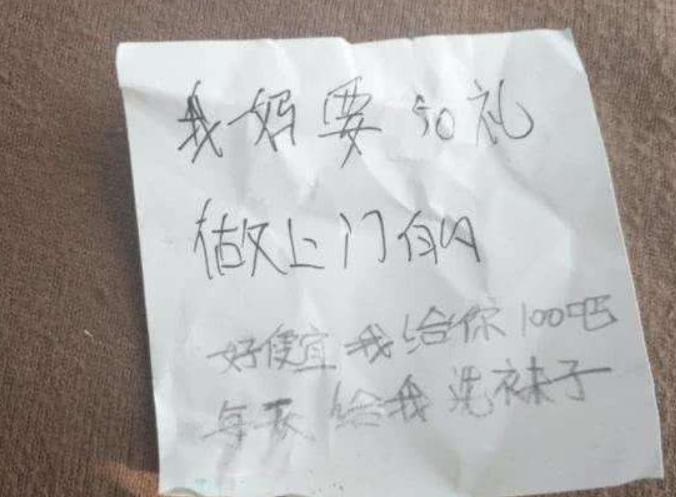 我妈要50礼
做上门的
好便宜 我给你100吧
每天 给我洗袜子